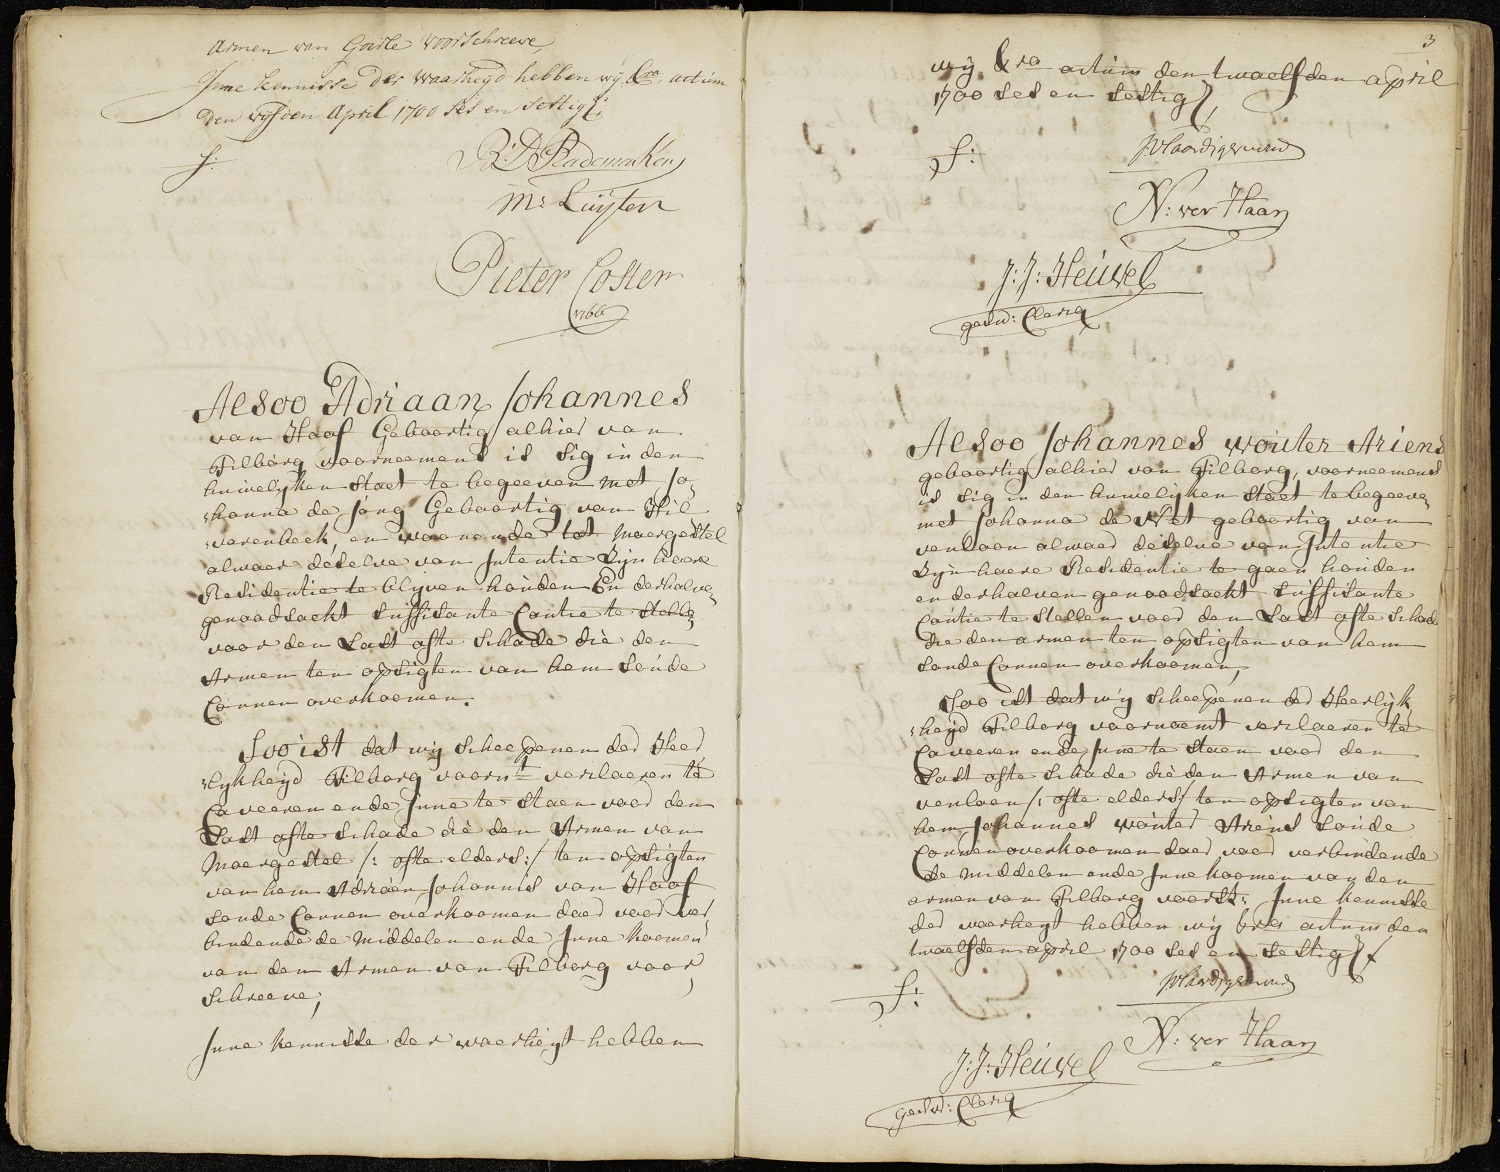 Armen van Goirle voorschreeve,
Inne kennisse der waarheyd hebben wij &ra actum
den vijfden April 1700 ses en sestig
f:
R: D: Rademaken
M: Luijten
Pieter Coster
1766
Alsoo Adriaan Johannes
van Haaf Geboortig alhier van
Tilborg voorneemens is sig in den
huwelijken staet te begeeven met Jo
hanna de Jong Geboortig van Hil
varenbeek, en woonende tot Moergestel
alwaer deselve van Intentie Zijn haere
Residentie te blijven houden En derhalve
genoodsackt suffisante Cautie te stelle
voor den Last ofte schade die den
Armen ten opsigten van hem soude
Connen overkoomen.
Soo ist dat wij scheepenen der Heer
lykheyd Tilborg voornt verclaeren te
Caveeren ende Inne te staen voor den
Last ofte schade die den Armen van
Moergestel /: ofte elders:/ ten opsigten
van hem Adriaen Johannis van Haaf
soude Connen overkoomen daer voor ver
bindende de middelen ende Inne koomen
van den Armen van Tilborg voor
schreeve,
Inne kennisse der waerheyt hebben
3
wij &ra actum den twaelfden april
1700 ses en sestig
f:
J: Vlaardigerwoud
N: ver Haan
J: J: Heuvel
geadm: Clercq
Alsoo Johannes Wouter Ariens
geboortig alhier van Tilborg, voorneemens
is sig in den huwelijken staet te begeeve
met Johanna de Wit geboortig van
venloon alwaer deselve van Intentie
Zijn haere Residentie te gaen houden
en derhalven genoodsackt suffisante
Cautie te stellen voor den Last ofte schade
die den armen ten opsigten van hem
soude Connen overkoomen,
Soo ist dat wij scheepenen der Heerlijk
heyd Tilborg voornoemt verclaeren te
Caveeren ende Inne te staen voor den
Last ofte schade die den Armen van
venloon /: ofte elders/ ten opsigten van
hem Johannes Wouter Ariens soude
Connen overkoomen daer voor verbindende
de middelen ende Inne koomen van den
armen van Tilborg voorst: Inne kennisse
der waerheyt hebben wij &ra actum den
twaelfden april 1700 ses en sestig
f:
J: Vlaardigerwoud
N: ver Haan
J: J: Heuvel
geadm: Clercq